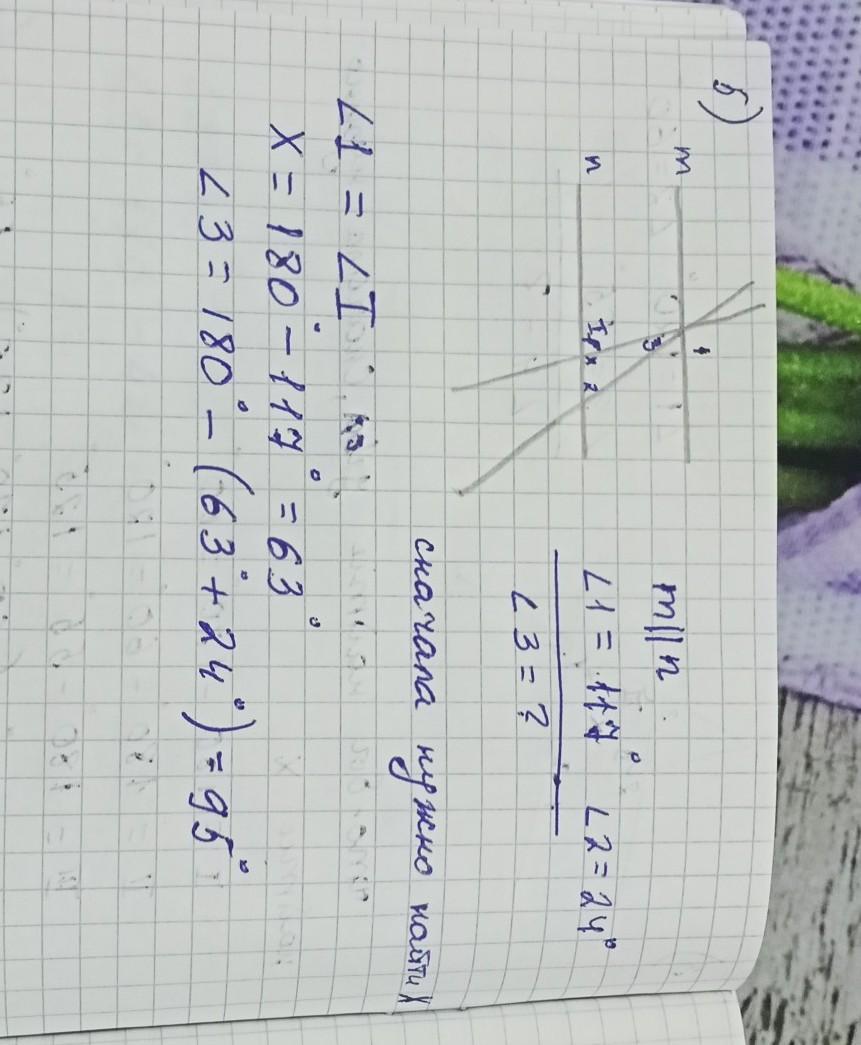 б)
m
n
1
3
I x 2
m||n
∠1 = 117° ∠2 = 24°
∠3 = ?
сначала нужно найти X
∠1 = ∠I
X = 180° - 117° = 63°
∠3 = 180° - (63° + 24°) = 95°